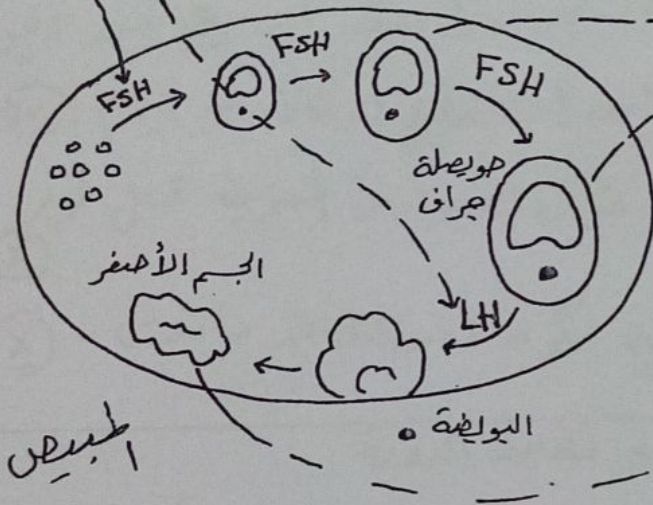 FSH
FSH
FSH
حويصلة
جراف
الجسم الأصفر
LH
البويضة
المبيض